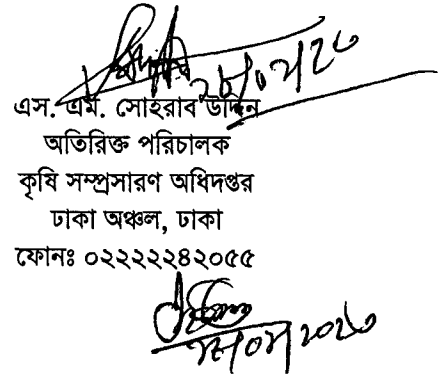 এস. এম. সোহরাব উদ্দিন
অতিরিক্ত পরিচালক
কৃষি সম্প্রসারণ অধিদপ্তর
ঢাকা অঞ্চল, ঢাকা
ফোনঃ ০২২২২২৪২০৫৫